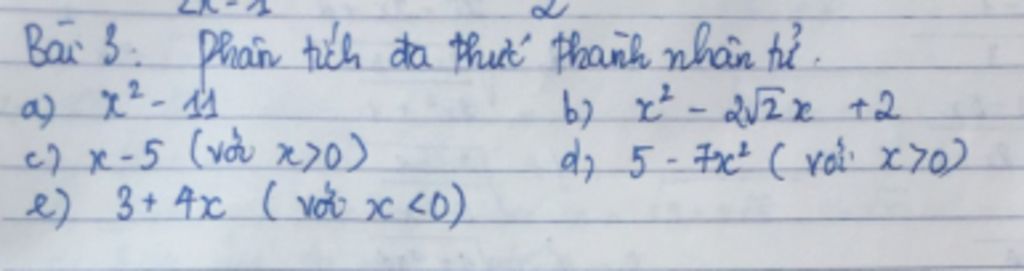 Bài 3: Phân tích đa thức thành nhân tử.
a) x² - 11 b) x² - 2√2x + 2
c) x - 5 (với x>0) d) 5 - 7x² ( với x>0)
e) 3 + 4x ( với x <0)